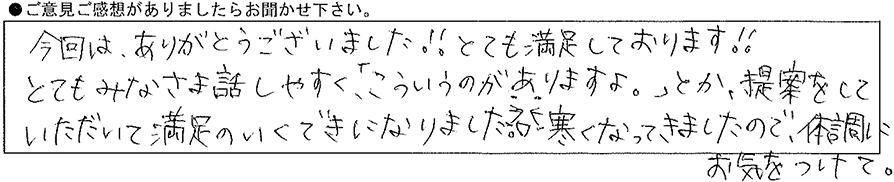 ●ご意見ご感想がありましたらお聞かせ下さい。
今回は、ありがとうございました!! とても満足しております!!
とてもみなさま話しやすく、「こういうのがありますよ。」とか、提案をして
いただいて満足のいくできになりました。寒くなってきましたので、体調に
お気をつけて。